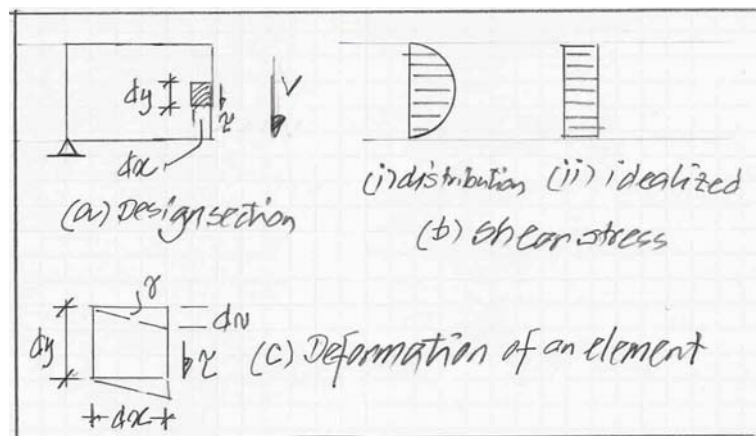 dy
τ
V
dx
(a) Design section
(i) distribution (ii) idealized
(b) Shear stress
γ
dv
dy
τ
(c) Deformation of an element
dx